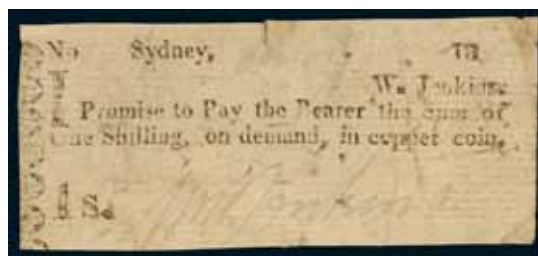 No Sydney, 18
W. Jenkins.
I Promise to Pay the Bearer the sum of
One Shilling, on demand, in copper coin.
1 S.
Wm Jenkins